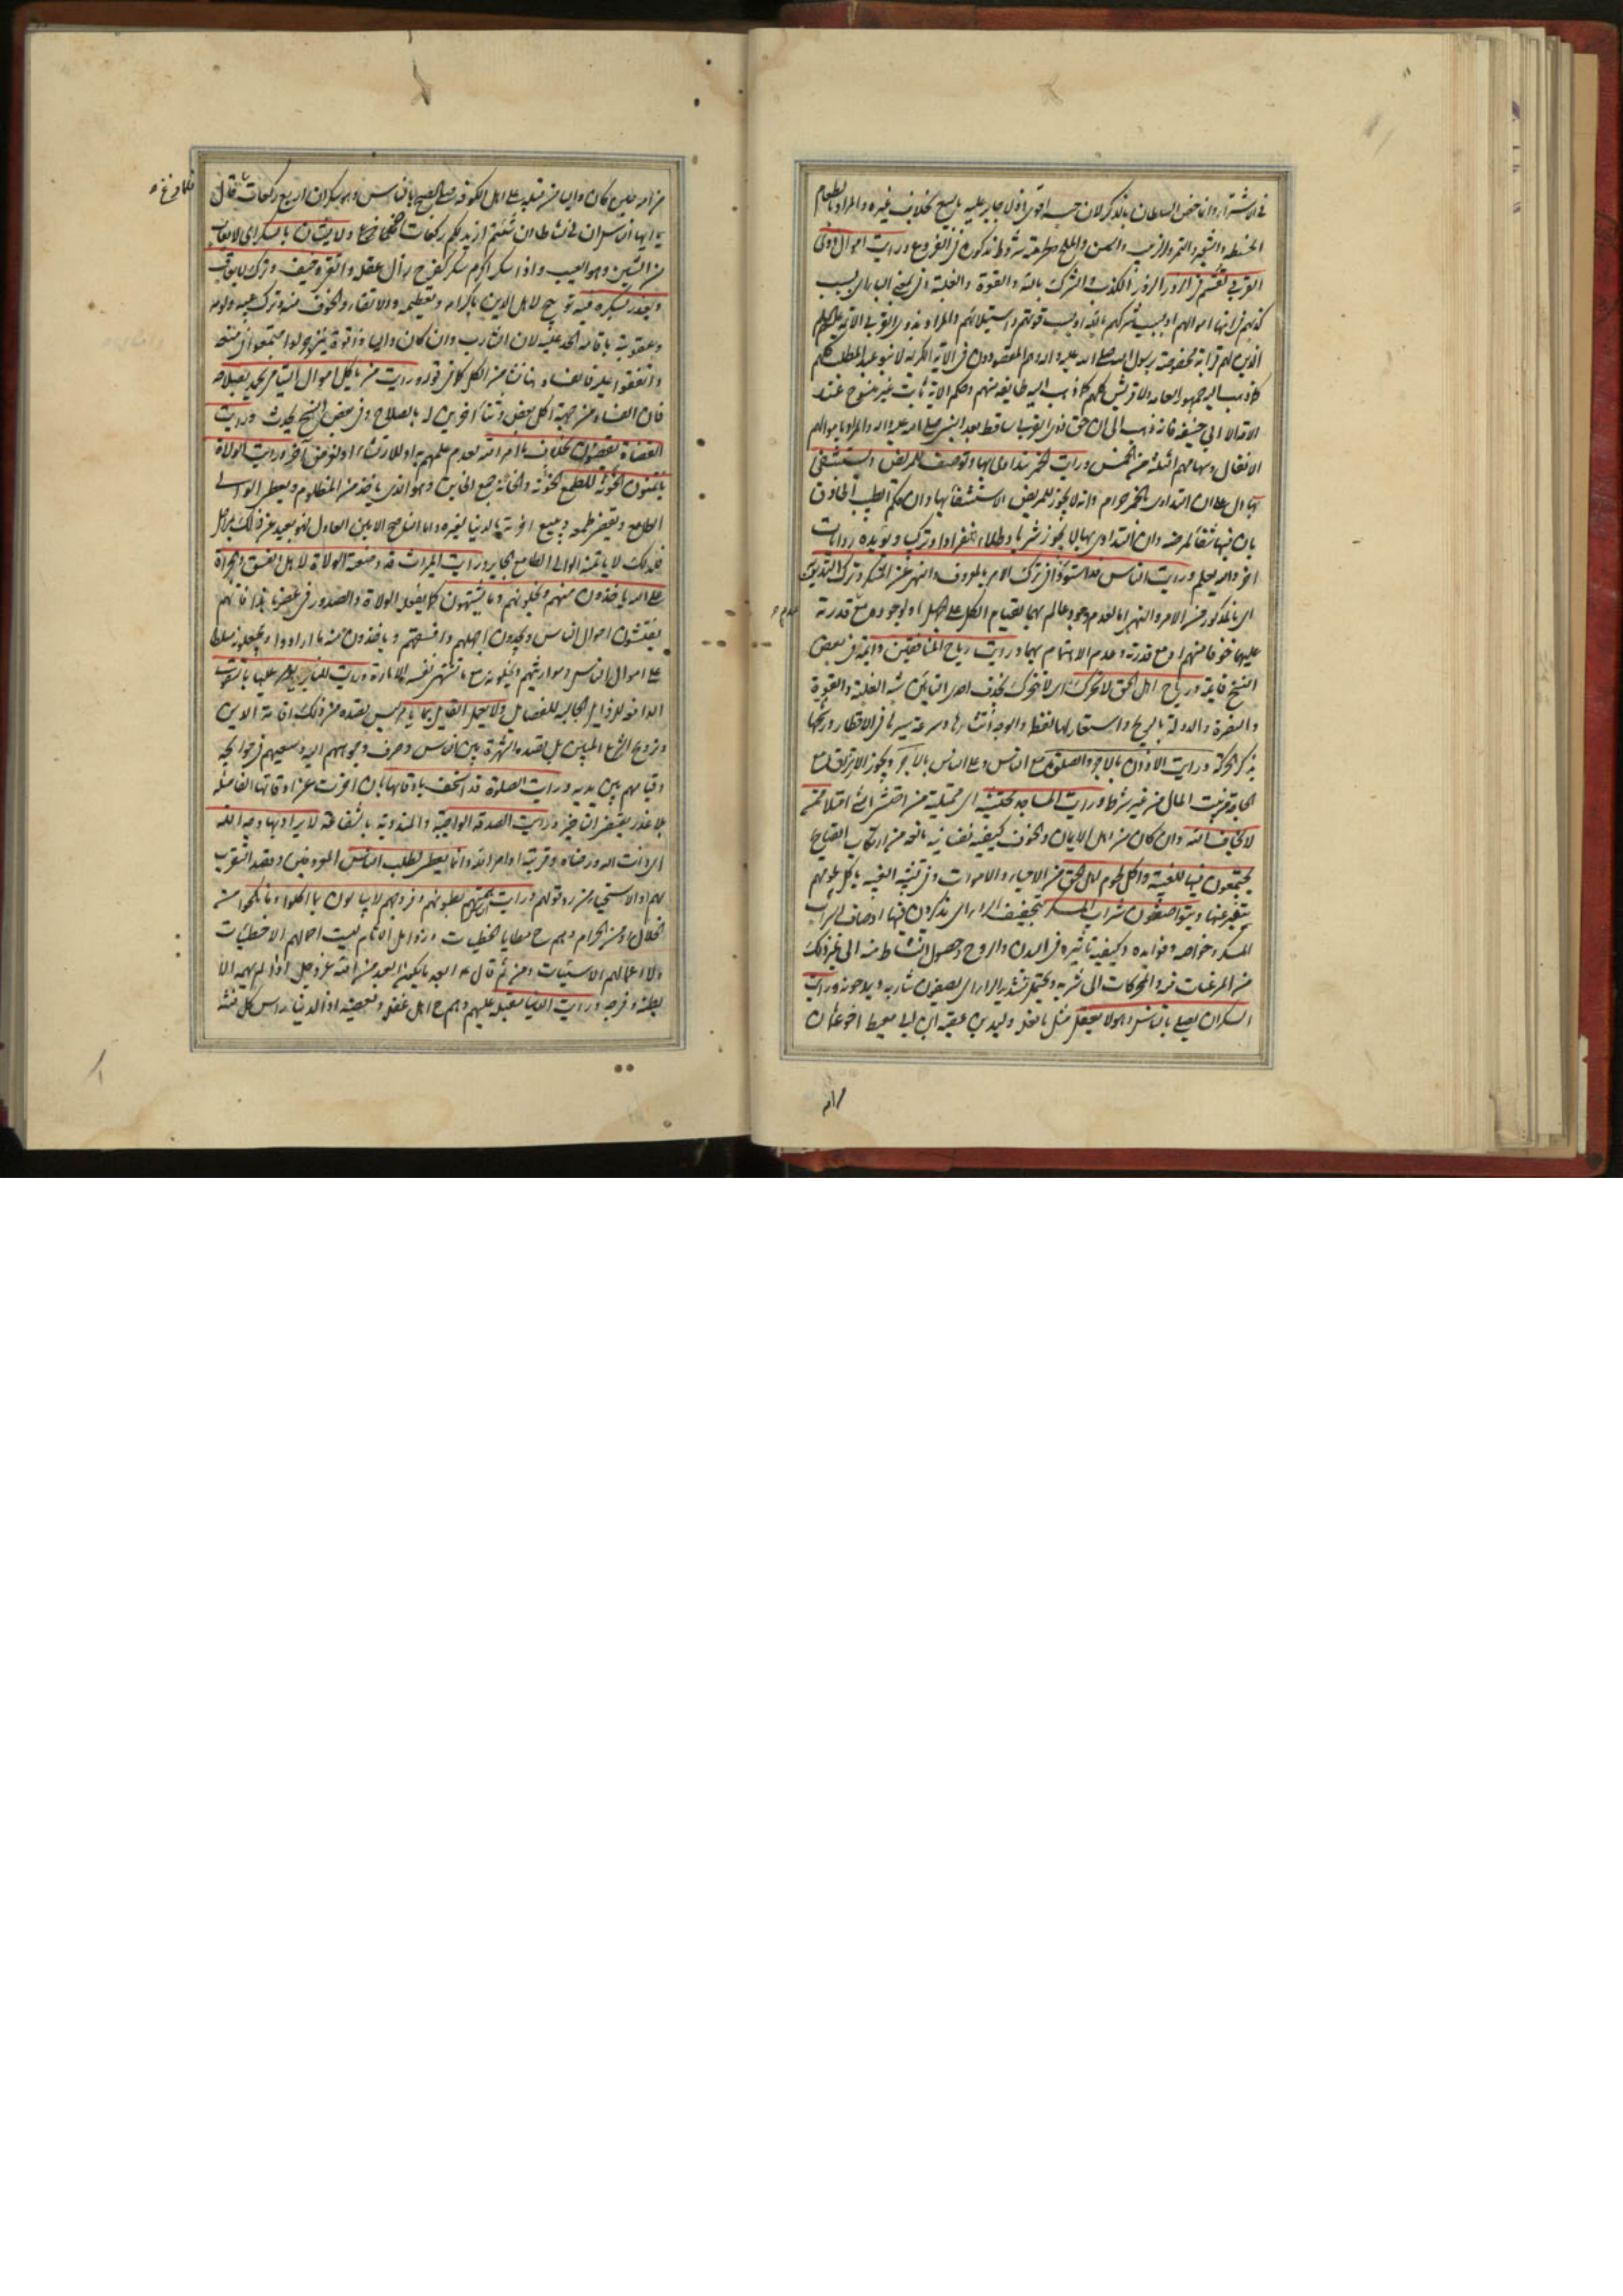 في الاشتراء وانما خص السلطان بالذكر لان حبسه اقوى اذ لا جابر عليه بالبيع بخلاف غيره والمراد بالطعام
الحنطة والشعير والتمر والزبيب والسمن والملح بشروط مذكورة في الفروع ورايت اموال ذوى
القربى تقسم في الزور الزور الكذب والشرك بالله والقوة والغلبة
كذبهم في انها اموالهم او بسبب شركهم بالله او بسبب قوتهم واستيلائهم والمراد بذوى القربى
الذين لهم قرابة مخصوصة برسول الله صلى الله عليه واله وهم المقصودون في الاية الكريمة لا بنو عبد المطلب كلهم
كما ذهب اليه جمهور العامة ولا قريش كلهم كما ذهب اليه طايفة منهم وحكم الاية ثابت غير منسوخ عند
الامة الا ابي حنيفة فانه ذهب الى ان حق ذوى القربى ساقط بعد النبي صلى الله عليه واله والمراد باموالهم
الانفال وسهامهم الثلثة من الخمس ورايت الخمر يتداوى بها وتوصف للمريض ويستشفى
بها دل على ان التداوى بالخمر حرام وانه لا يجوز للمريض الاستشفاء بها وان حكم الطبيب الحاذق
بان فيها شفاء لمرضه وان التداوى بها لا يجوز شربا وطلاء منفردا او تركيبا ويؤيده روايات
اخر والله يعلم ورايت الناس قد استووا في ترك الامر بالمعروف والنهى عن المنكر وترك التدين
اى بالمذكور من الامر والنهى اما لعدم وجود عالم بهما لقيام الكل على الجهل او لوجوده مع قدرته
عليهما خوفا منهم او مع قدرته وعدم الاهتمام بهما ورايت رياح المنافقين دائمة في بعض
النسخ قايمة ورياح اهل الحق لا تحرك اى لا تتحرك بحذف احدى التائين شبه الغلبة والقوة
والنصرة والدولة بالريح واستعار لها لفظها والوجه انتشارها وسرعة سيرها في الاقطار ورشحها
بذكر الحركة ورايت الاذان بالاجر والصلوة مع الناس وعلى الناس بالاجر ويجوز الارتزاق مع
الحاجة من بيت المال من غير شرط ورايت المساجد محتشية اى ممتلية من احتشى اذا امتلا ممن
لا يخاف الله وان كان من اهل الايمان والخوف كيفية نفسانية مانعة من ارتكاب القبايح
يجتمعون فيها للغيبة واكل لحوم اهل الحق من الاحياء والاموات وفي تشبيه الغيبة باكل لحومهم
تنفير عنها ويتواصفون شراب المسكر بتخفيف الراء اى يذكرون فيها اوصاف الشراب
المسكر وخواصه وفوايده وكيفية تاثيره في البدن والروح وحصول النشاط منه الى غير ذلك
من المرغبات فيه والمحركات الى شربه ويحتمل تشديد الراء اى يصفون شاربه ويمدحونه ورايت
السكران يصلى بالناس وهو لا يعقل مثل ما نقل وليد بن عقبة ابن ابى معيط اخو عثمان
من امه حين كان واليا من قبله على اهل الكوفة صلى الصبح بالناس وهو سكران اربع ركعات قال
فلما فرغ
يا ايها الناس ان لى نشاطا ان شئتم ازيدكم ركعات ولا يشان بالسكر اى لا يعاب
من الشين وهو العيب واذا سكر اكرم سكر كفرح زال عقله واتقى وخيف وترك لا يعاقب
ويعذر بسكره فيه توبيخ لاهل الدين باكرامه وتعظيمه والاتقاء والخوف منه وترك عيبه ولومه
وعقوبته باقامة الحد عليه لان الشارب وان كان واليا ذا قوة
ورايت من ياكل اموال اليتامى يحمد بصلاحه
فان الفساد من جهة اكل بعض وثناء اخرين له بالصلاح وفي بعض النسخ يحدث ورايت
القضاة يقضون بخلاف ما امر الله لعدم علمهم به او للارتشاء او لغرض اخر ورايت الولاة
ياتمنون الخونة للطمع الخونة والخانة جمع الخاين وهو الذى ياخذ من المظلوم ويعطى الوالى
الطامع ويقضى طمعه ويبيع اخرته بالدنيا لغيره واما الناصح الامين العادل فهو بعيد عن ذلك
فلذلك لا ياتمنه الوالى الطامع الجاير ورايت الميراث قد وضعته الولاة لاهل الفسق والجراة
على الله ياخذون منهم ويخلونهم وما يشتهون كما يفعل الولاة والصدور في عصرنا هذا فانهم
يفتشون اموال الناس وياخذون منه ما ارادوا ويجعلونه مسلطا
على اموال الناس ومواريثهم ويخلونه مع ما تشتهى نفسه الامارة ورايت المنابر يؤمر عليها بالتقوى
الدافعة للرذايل الجالبة للفضايل ولا يعمل القايل بما يامر ليس قصده من ذلك اقامة الدين
وترويج الشرع المبين بل قصده الشهرة بين الناس وصرف وجوههم اليه وسعيهم في حوايجه
وقيامهم بين يديه ورايت الصلوة قد استخف باوقاتها بان اخرت عن اوقاتها الفاضلة
بلا عذر يقتضى التاخير ورايت الصدقة الواجبة والمندوبة بالشفاعة لا يراد بها وجه الله
اى ذات الله ورضاه وقربه او امر الله وانما يعطى لطلب الناس المعروفين وقصد التقرب
لهم او الاستحياء من رد قولهم ورايت الناس همهم بطونهم وفروجهم لا يبالون بما اكلوا وما نكحوا من
الحلال او من الحرام وهم ح مطايا الخطيئات وزوامل الاثام ليست احمالهم الا خطيئات
ولا اعمالهم الا سيئات ومن ثم قال ع ابعد ما يكون العبد من الله عز وجل اذا لم يهمه الا
بطنه وفرجه ورايت الدنيا مقبلة عليهم وهم ح اهل غفلة ومعصية اذ الدنيا راس كل فتنة